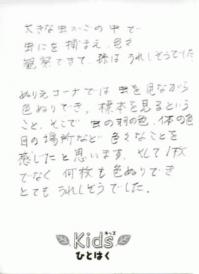 大きな虫かごの中で
虫にを捕まえ、色々
観察できて、孫はうれしそうでした
ぬりえコーナでは虫を見ながら
色ぬりでき、標本を見るという
こと、そこで虫の羽の色、体の色
目の場所など色々なことを
感じたと思います。そして1枚
でなく何枚も色ぬりでき
とてもうれしそうでした。
Kids
キッズ
ひとはく